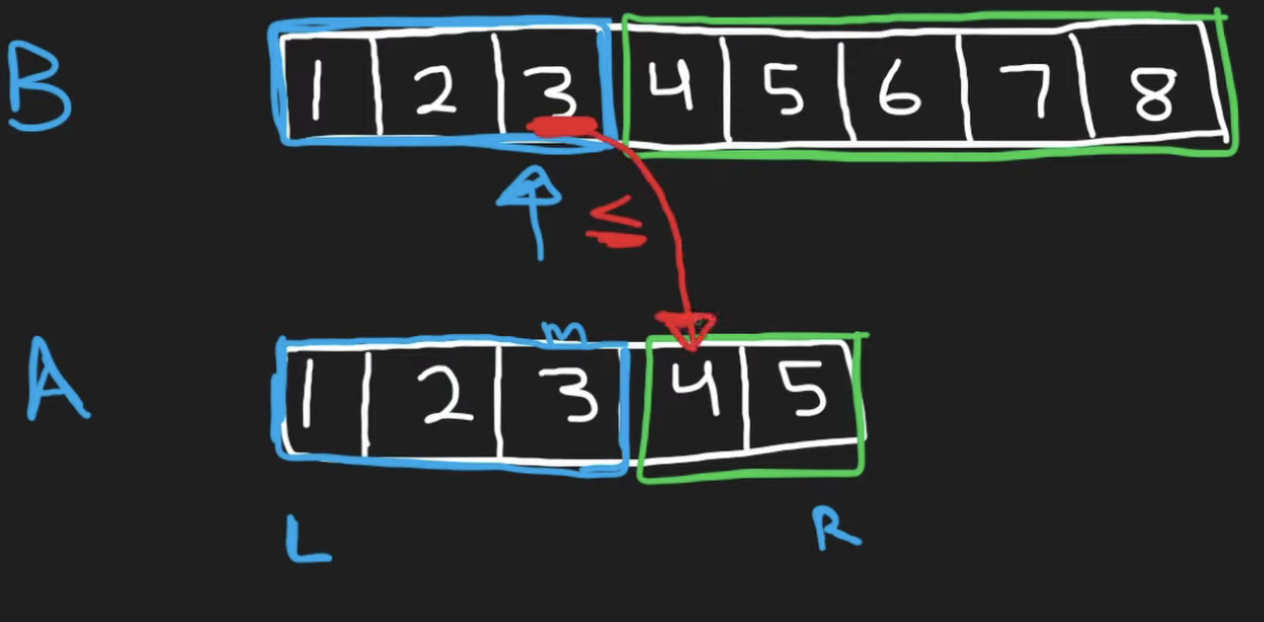 B 1 2 3 4 5 6 7 8
≤
m
A 1 2 3 4 5
L R